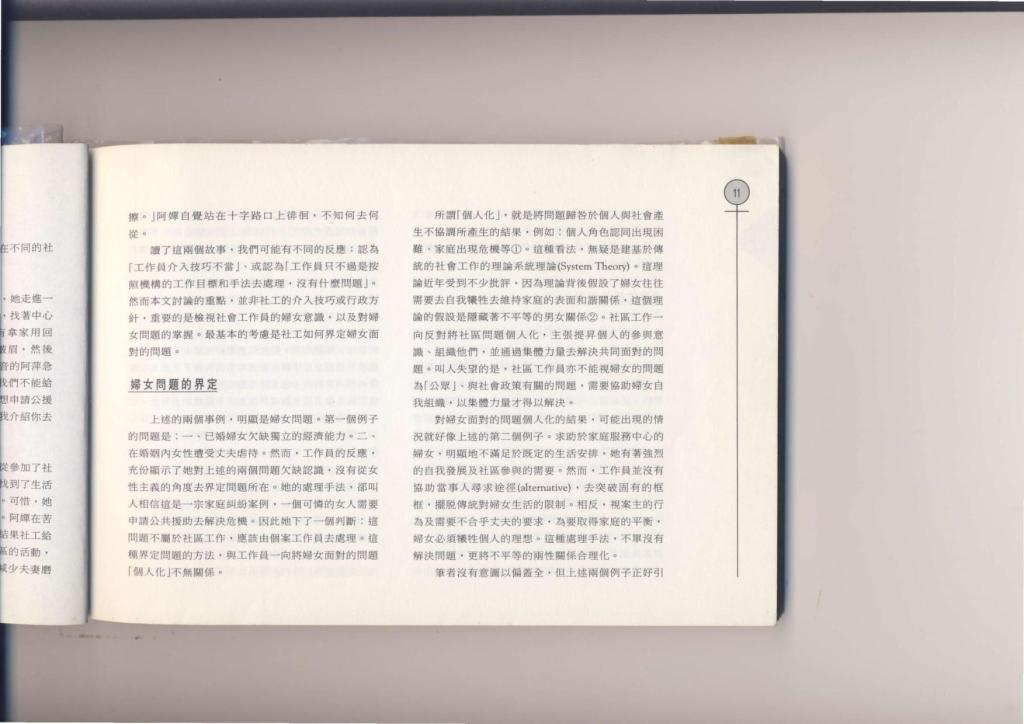 在不同的社
，她走進一
，找著中心
有拿家用回
皺眉，然後
音的阿萍急
我們不能給
想申請公援
我介紹你去
從參加了社
找到了生活
。可惜，她
。阿嬋在苦
結果社工給
區的活動，
減少夫妻磨
擦。」阿嬋自覺站在十字路口上徘徊，不知何去何
從。
讀了這兩個故事，我們可能有不同的反應：認為
「工作員介入技巧不當」、或認為「工作員只不過是按
照機構的工作目標和手法去處理，沒有什麼問題」。
然而本文討論的重點，並非社工的介入技巧或行政方
針，重要的是檢視社會工作員的婦女意識，以及對婦
女問題的掌握。最基本的考慮是社工如何界定婦女面
對的問題。
婦女問題的界定
上述的兩個事例，明顯是婦女問題。第一個例子
的問題是：一、已婚婦女欠缺獨立的經濟能力。二、
在婚姻內女性遭受丈夫虐待。然而，工作員的反應，
充份顯示了她對上述的兩個問題欠缺認識，沒有從女
性主義的角度去界定問題所在。她的處理手法，卻叫
人相信這是一宗家庭糾紛案例，一個可憐的女人需要
申請公共援助去解決危機。因此她下了一個判斷：這
問題不屬於社區工作，應該由個案工作員去處理。這
種界定問題的方法，與工作員一向將婦女面對的問題
「個人化」不無關係。
所謂「個人化」，就是將問題歸咎於個人與社會產
生不協調所產生的結果，例如：個人角色認同出現困
難、家庭出現危機等①。這種看法，無疑是建基於傳
統的社會工作的理論系統理論(System Theory)。這理
論近年受到不少批評，因為理論背後假設了婦女往往
需要去自我犧牲去維持家庭的表面和諧關係，這個理
論的假設是隱藏著不平等的男女關係②。社區工作一
向反對將社區問題個人化，主張提昇個人的參與意
識、組織他們，並通過集體力量去解決共同面對的問
題。叫人失望的是，社區工作員亦不能視婦女的問題
為「公眾」、與社會政策有關的問題，需要協助婦女自
我組織，以集體力量才得以解決。
對婦女面對的問題個人化的結果，可能出現的情
況就好像上述的第二個例子。求助於家庭服務中心的
婦女，明顯地不滿足於既定的生活安排，她有著強烈
的自我發展及社區參與的需要。然而，工作員並沒有
協助當事人尋求途徑(alternative)，去突破固有的框
框，擺脫傳統對婦女生活的限制。相反，視案主的行
為及需要不合乎丈夫的要求，為要取得家庭的平衡，
婦女必須犧牲個人的理想。這種處理手法，不單沒有
解決問題，更將不平等的兩性關係合理化。
筆者沒有意圖以偏蓋全，但上述兩個例子正好引
11